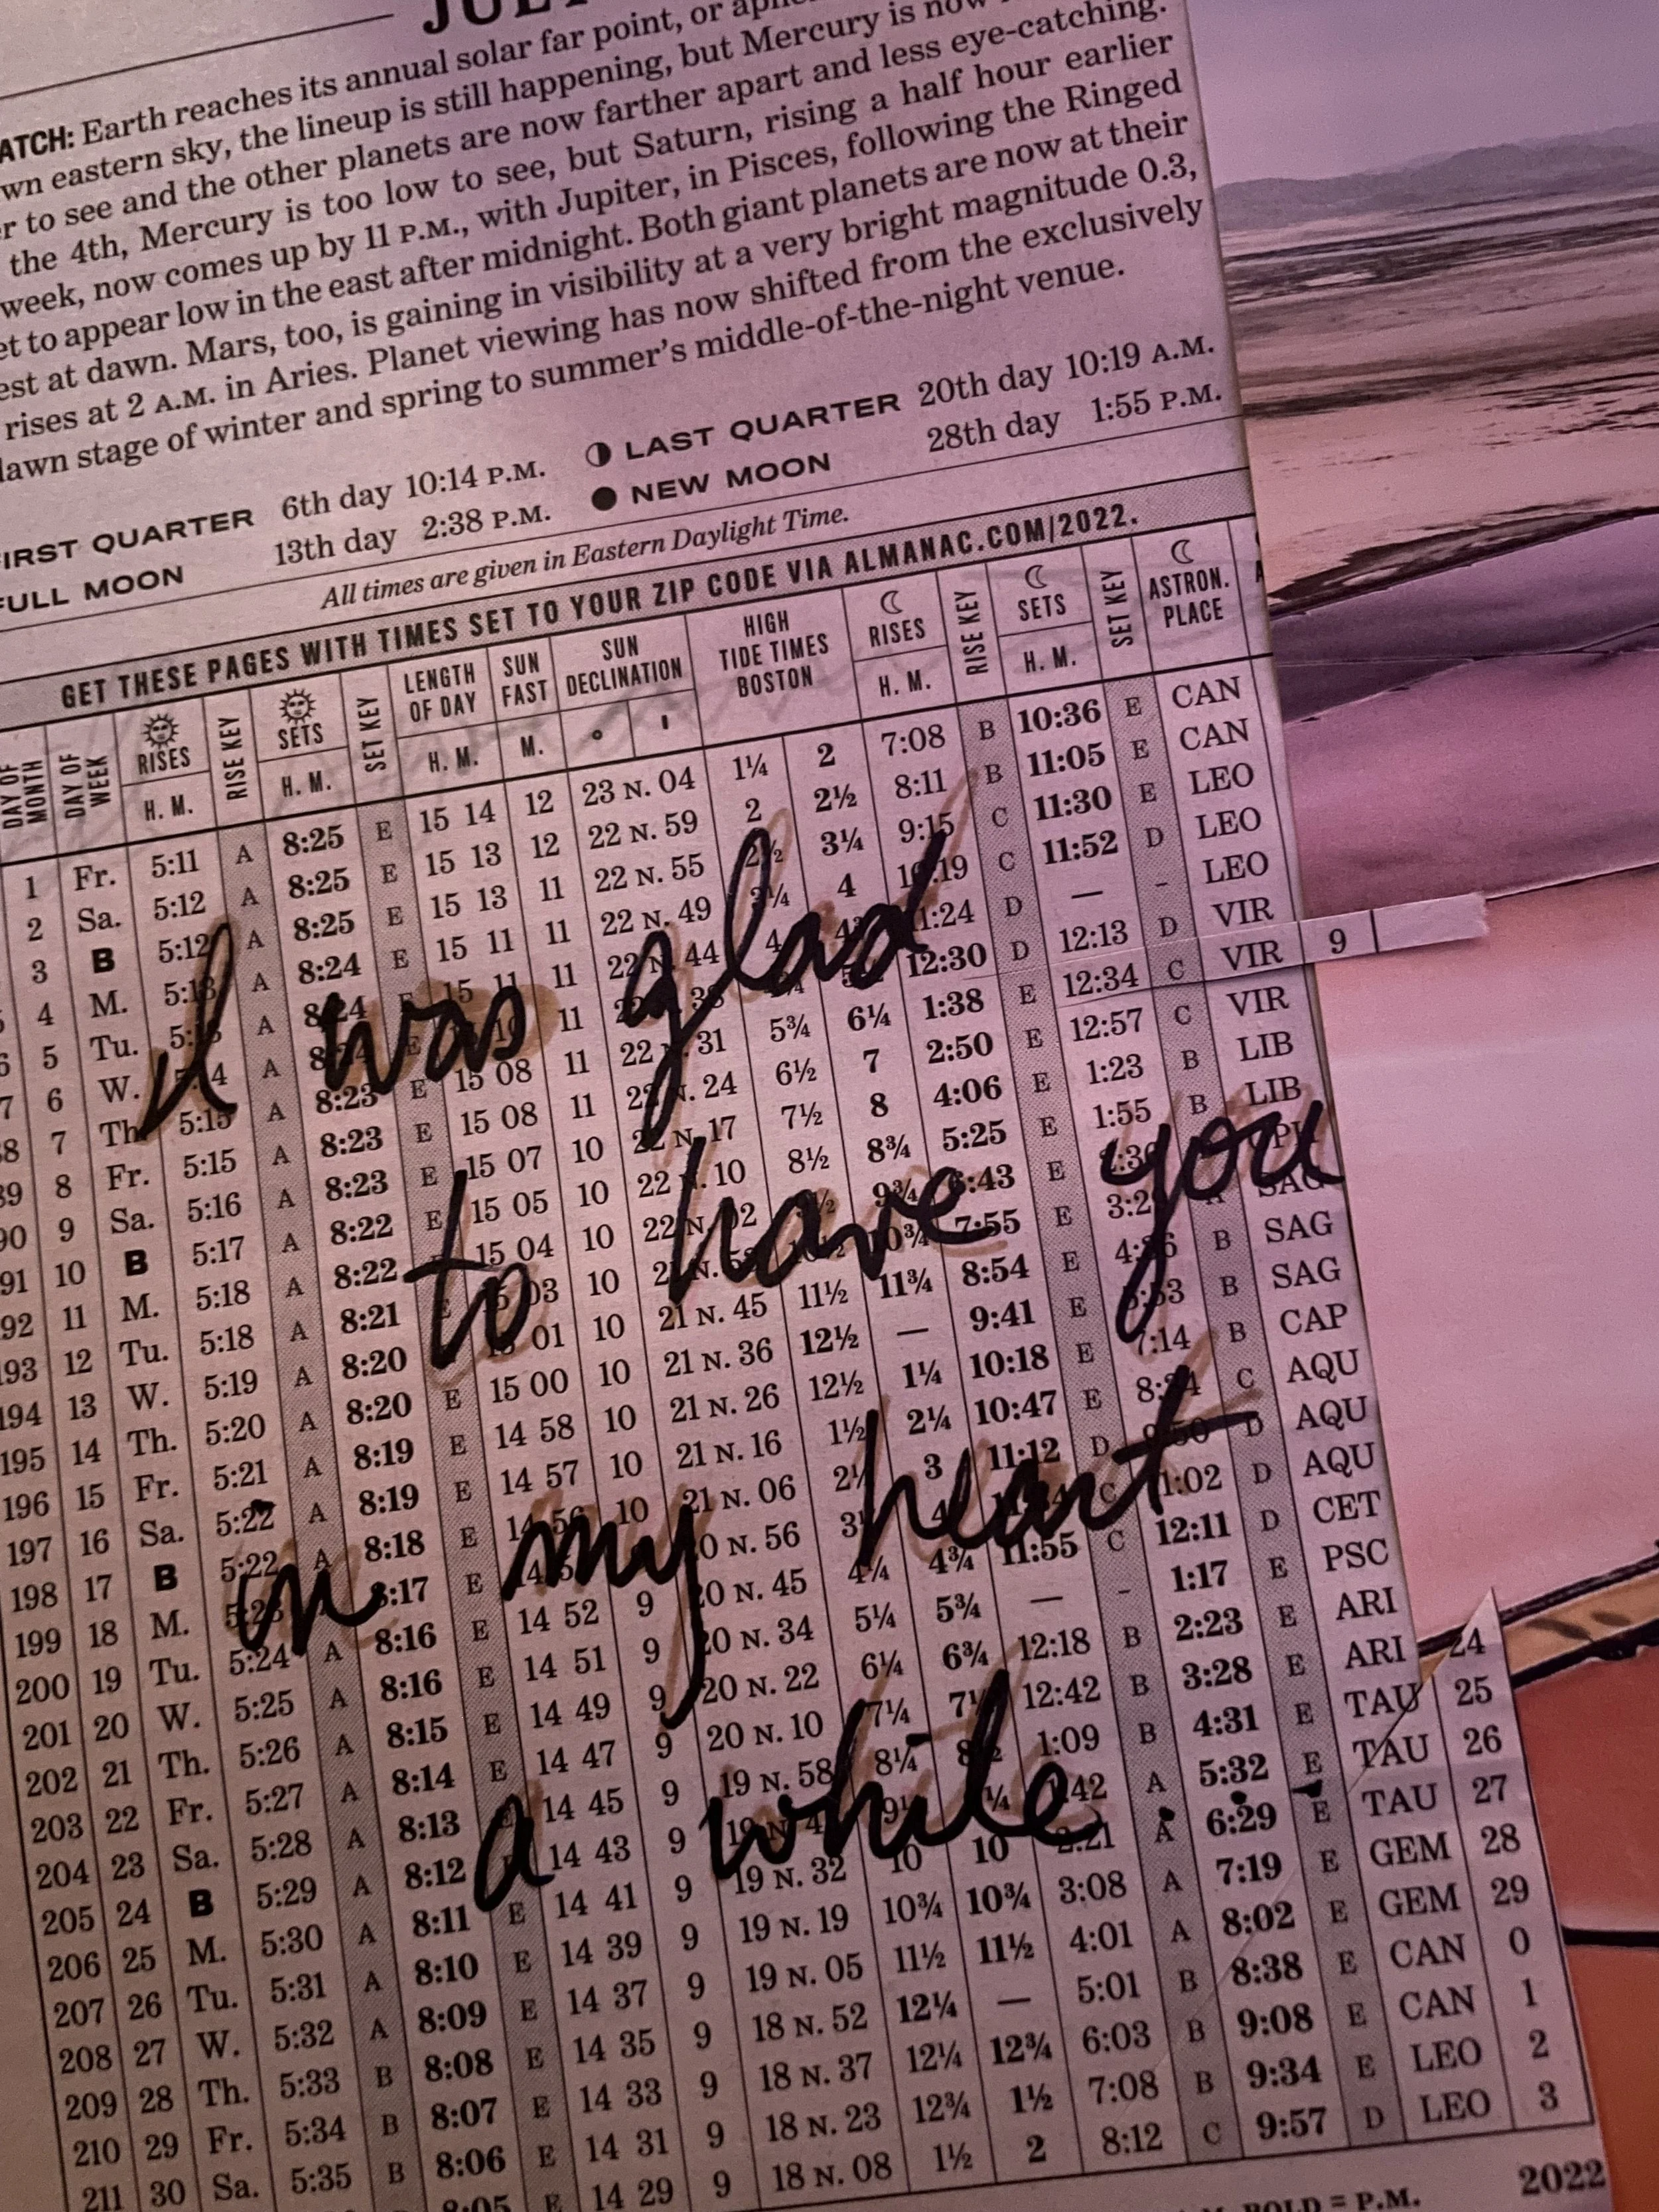 JULY
ATCH: Earth reaches its annual solar far point, or
wn eastern sky, the lineup is still happening, but Mercury is now
r to see and the other planets are now farther apart and less eye-catching.
the 4th, Mercury is too low to see, but Saturn, rising a half hour earlier
week, now comes up by 11 P.M., with Jupiter, in Pisces, following the Ringed
et to appear low in the east after midnight. Both giant planets are now at their
est at dawn. Mars, too, is gaining in visibility at a very bright magnitude 0.3,
rises at 2 A.M. in Aries. Planet viewing has now shifted from the exclusively
dawn stage of winter and spring to summer's middle-of-the-night venue.
FIRST QUARTER 6th day 10:14 P.M. LAST QUARTER 20th day 10:19 A.M.
FULL MOON 13th day 2:38 P.M. NEW MOON 28th day 1:55 P.M.
All times are given in Eastern Daylight Time.
GET THESE PAGES WITH TIMES SET TO YOUR ZIP CODE VIA ALMANAC.COM/2022.
DAY OF MONTH DAY OF WEEK RISES H. M. RISE KEY SETS H. M. SET KEY LENGTH OF DAY H. M. SUN FAST M. SUN DECLINATION ° ' HIGH TIDE TIMES BOSTON RISES H. M. RISE KEY SETS H. M. SET KEY ASTRON. PLACE
1 Fr. 5:11 A 8:25 E 15 14 12 23 N. 04 1¼ 2 7:08 B 10:36 E CAN
2 Sa. 5:12 A 8:25 E 15 13 12 22 N. 59 2 2½ 8:11 B 11:05 E CAN
3 B 5:12 A 8:25 E 15 13 11 22 N. 55 2½ 3¼ 9:15 C 11:30 E LEO
4 M. 5:13 A 8:24 E 15 11 11 22 N. 49 3¼ 4 10:19 C 11:52 D LEO
5 Tu. A 8:24 E 15 11 11 22 N. 44 4 11:24 D — - LEO
6 W. 5:14 A 8:24 E 15 10 11 22 N. 38 12:30 D 12:13 D VIR
7 Th. 5:15 A 8:23 E 15 08 11 22 N. 31 5¾ 6¼ 1:38 E 12:34 C VIR 9
8 Fr. 5:15 A 8:23 E 15 08 11 22 N. 24 6½ 7 2:50 E 12:57 C VIR
90 9 Sa. 5:16 A 8:23 E 15 07 10 22 N. 17 7½ 8 4:06 E 1:23 B LIB
91 10 B 5:17 A 8:22 E 15 05 10 22 N. 10 8½ 8¾ 5:25 E 1:55 B LIB
92 11 M. 5:18 A 8:22 E 15 04 10 22 N. 02 9½ 9¾ 6:43 E 2:36 OPH
193 12 Tu. 5:18 A 8:21 E 15 03 10 21 N. 10½ 10¾ 7:55 E 3:29 A SAG
194 13 W. 5:19 A 8:20 15 01 10 21 N. 45 11½ 11¾ 8:54 E 4:36 B SAG
195 14 Th. 5:20 A 8:20 E 15 00 10 21 N. 36 12½ — 9:41 E 5:53 B SAG
196 15 Fr. 5:21 A 8:19 E 14 58 10 21 N. 26 12½ 1¼ 10:18 E 7:14 B CAP
197 16 Sa. 5:22 A 8:19 E 14 57 10 21 N. 16 1½ 2¼ 10:47 E 8:34 C AQU
198 17 B 5:22 A 8:18 E 14 56 10 21 N. 06 2¼ 3 11:12 D 9:50 D AQU
199 18 M. 5:23 A 8:17 E 20 N. 56 11:34 C 11:02 D AQU
200 19 Tu. 5:24 A 8:16 E 14 52 9 20 N. 45 4¼ 4¾ 11:55 C 12:11 D CET
201 20 W. 5:25 A 8:16 E 14 51 9 20 N. 34 5¼ 5¾ — - 1:17 E PSC
202 21 Th. 5:26 A 8:15 E 14 49 9 20 N. 22 6¼ 6¾ 12:18 B 2:23 E ARI
203 22 Fr. 5:27 A 8:14 E 14 47 9 20 N. 10 7¼ 12:42 B 3:28 E ARI 24
204 23 Sa. 5:28 A 8:13 14 45 9 19 N. 58 8¼ 8½ 1:09 B 4:31 E TAU 25
205 24 B 5:29 A 8:12 E 14 43 9 19 N. 1:42 A 5:32 E TAU 26
206 25 M. 5:30 A 8:11 E 14 41 9 19 N. 32 10 10 2:21 A 6:29 E TAU 27
207 26 Tu. 5:31 A 8:10 E 14 39 9 19 N. 19 10¾ 10¾ 3:08 A 7:19 E GEM 28
208 27 W. 5:32 A 8:09 E 14 37 9 19 N. 05 11½ 11½ 4:01 A 8:02 E GEM 29
209 28 Th. 5:33 B 8:08 E 14 35 9 18 N. 52 12¼ — 5:01 B 8:38 E CAN 0
210 29 Fr. 5:34 B 8:07 E 14 33 9 18 N. 37 12¼ 12¾ 6:03 B 9:08 E CAN 1
211 30 Sa. 5:35 B 8:06 E 14 31 9 18 N. 23 12¾ 1½ 7:08 B 9:34 E LEO 2
8:05 E 14 29 9 18 N. 08 1½ 2 8:12 C 9:57 D LEO 3
BOLD = P.M. 2022
I was glad
to have you
in my heart
a while...